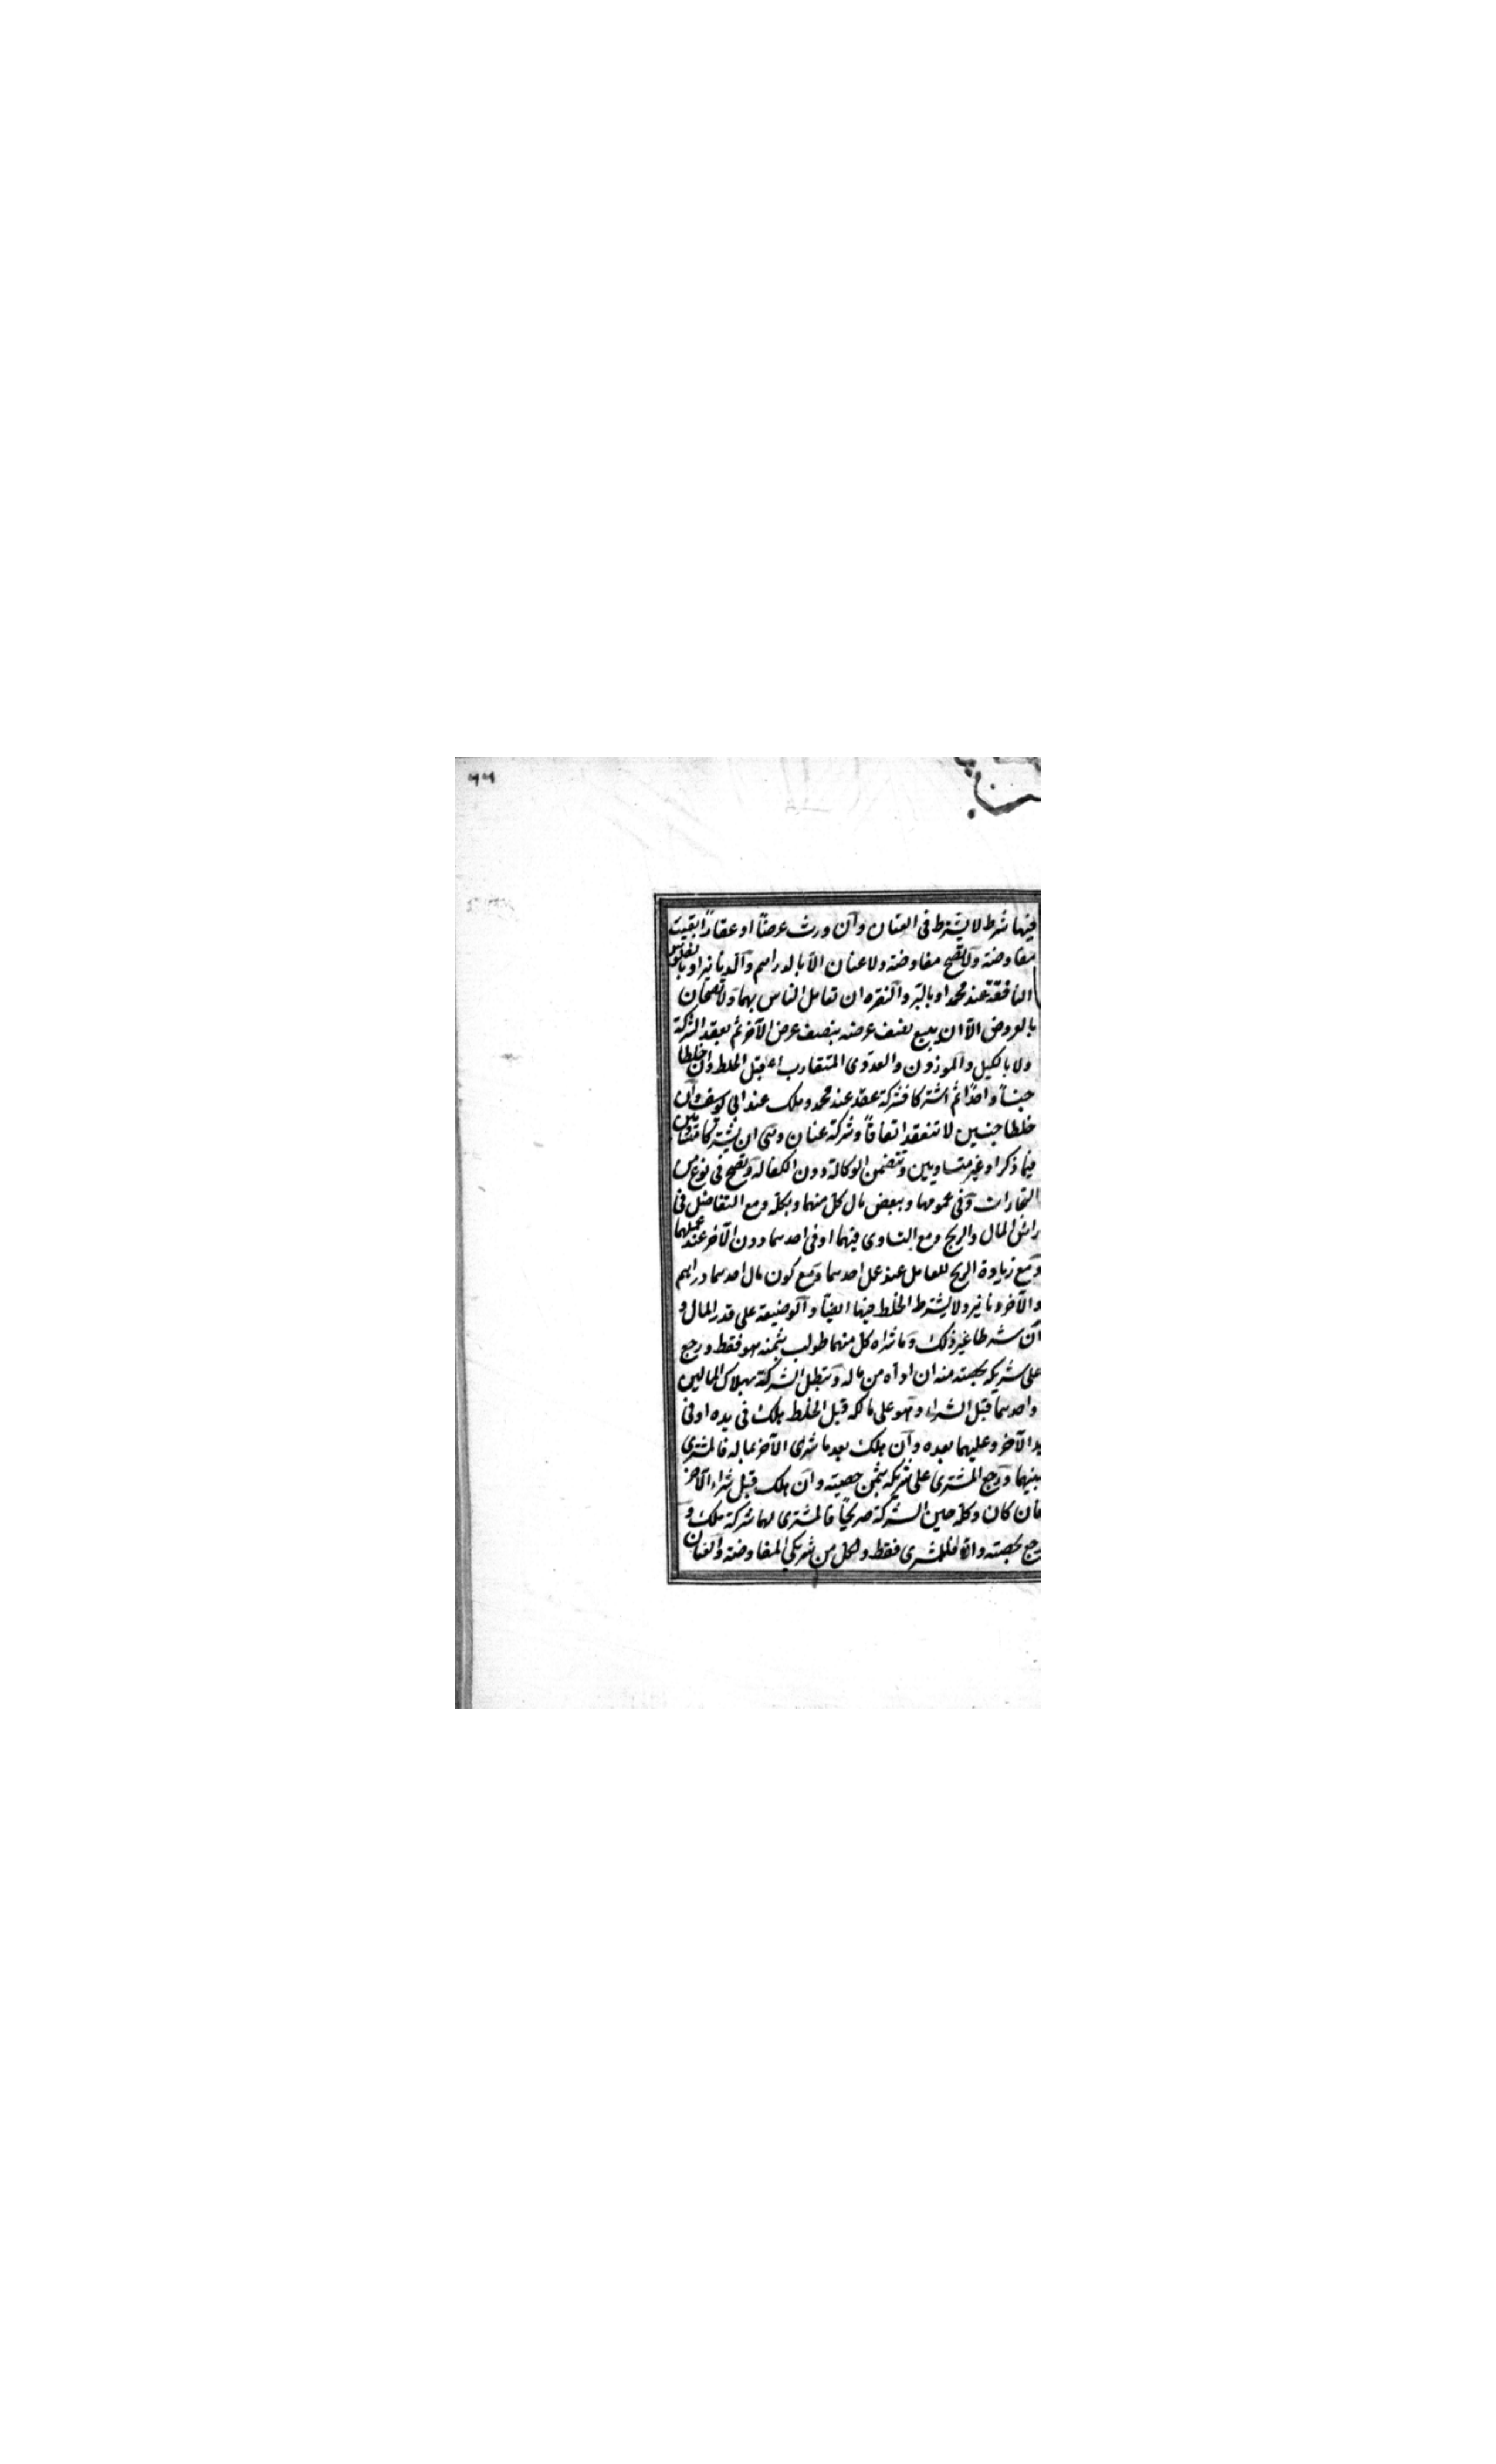 ٦٦
فيها شرط لا يشترط في العنان وان ورث عرضا او عقارا بقيت
مفاوضة ولا تصح مفاوضة ولا عنان الا بالدراهم والدنانير او بالفلوس
النافقة عند محمد او بالتبر والنقره ان تعامل الناس بهما ولا تصحان
بالعروض الا ان يبيع نصف عرضه بنصف عرض الآخر ثم يعقد الشركة
ولا بالمكيل والموزون والعددى المتقارب قبل الخلط وان خلطا
جنسا واحدا ثم اشتركا فشركة عقد عند محمد وملك عند ابى يوسف وان
خلطا جنسين لا تنعقد اتفاقا وشركة عنان وهى ان يشتركا متساويين
فيما ذكر او غير متساويين وتتضمن الوكالة دون الكفالة وتصح في نوع من
التجارات وفى عمومها وببعض مال كل منهما وبكله ومع التفاضل في
رأس المال والربح ومع التساوى فيهما او فى احدهما دون الآخر عند عملهما
ومع زيادة الربح للعامل عند عمل احدهما ومع كون مال احدهما دراهم
والآخر دنانير ولا يشترط الخلط فيها ايضا والوضيعة على قدر المال و
ان شرطا غير ذلك وما شراه كل منهما طولب بثمنه هو فقط ورجع
على شريكه بحصته منه ان اداه من ماله وتبطل الشركة بهلاك المالين
واحدهما قبل الشراء وهو على مالكه قبل الخلط هلك في يده او فى
يد الآخر وعليهما بعده وان هلك بعد ما شرى الآخر بماله فالمشترى
بينهما ورجع المشترى على شريكه بثمن حصته وان هلك قبل شراء الآخر
فان كان وكله حين الشركة صريحا فالمشترى لهما شركة ملك و
رجع بحصته والا فللمشترى فقط ولكل من شريكى المفاوضة والعنان